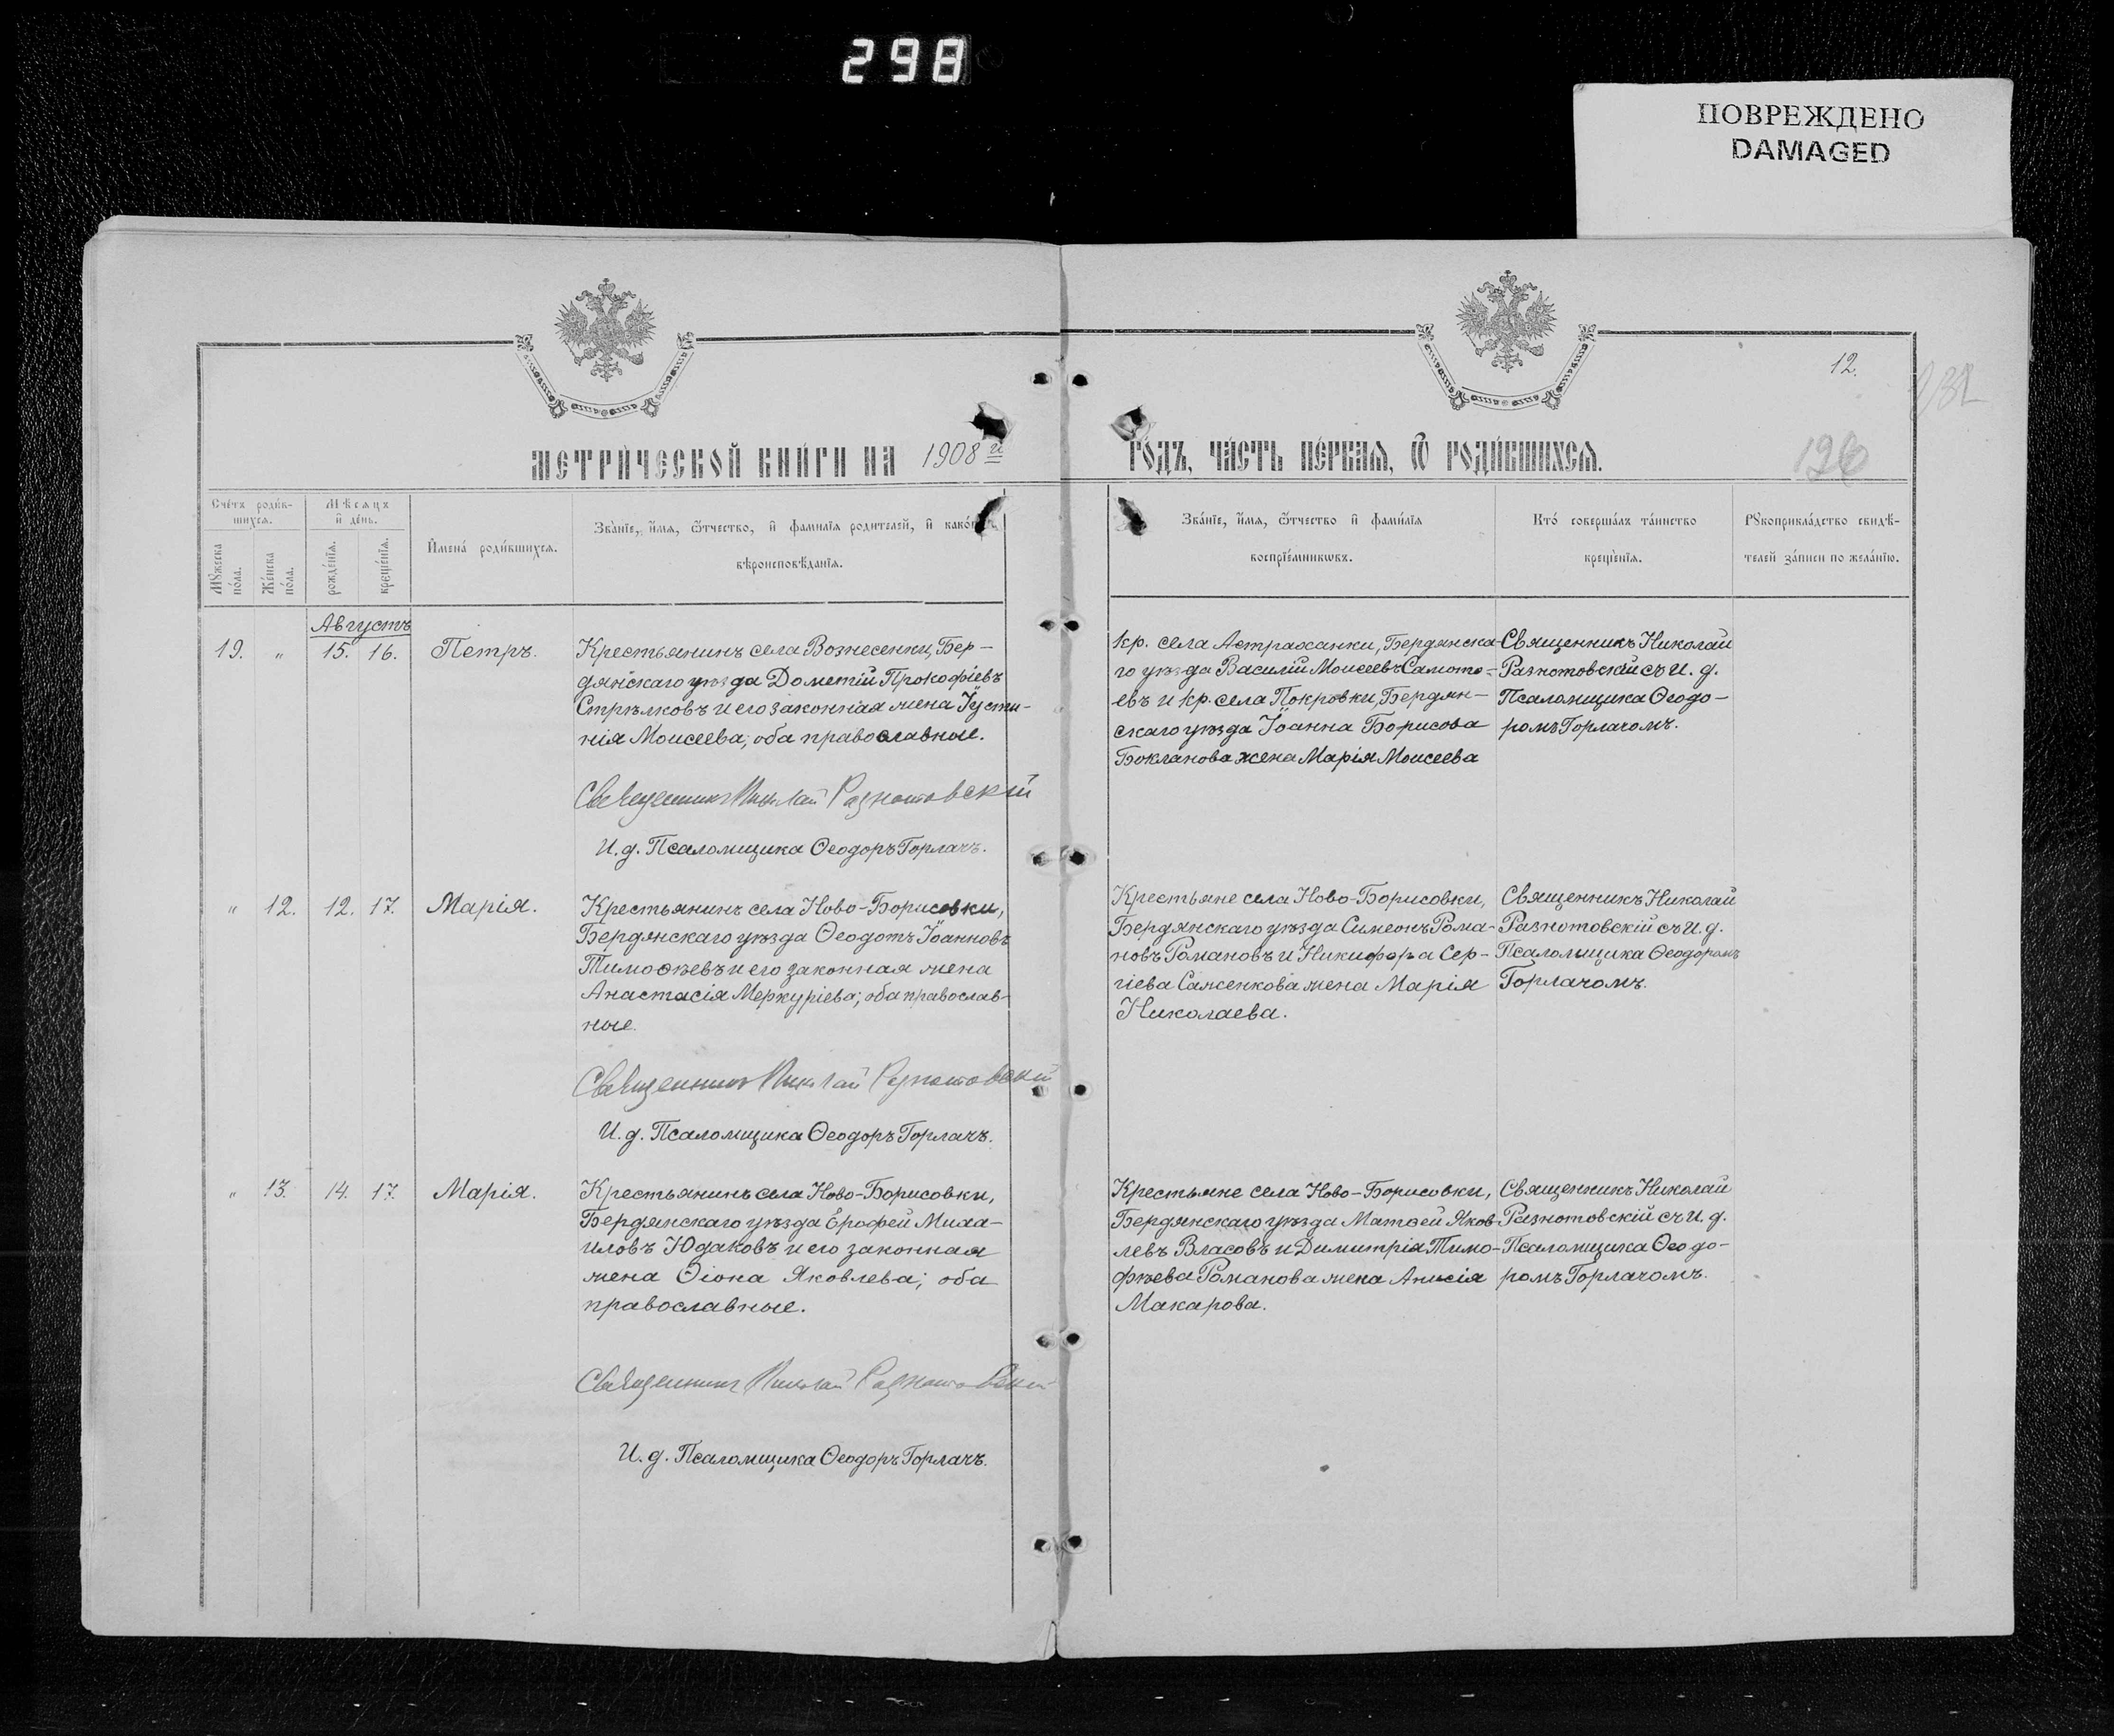 298
ПОВРЕЖДЕНО
DAMAGED
12.
132
126
МЕТРИЧЕСКОЙ КНИГИ НА 1908 й
ГОДЪ, ЧАСТЬ ПЕРВАЯ, Ѿ РОДИВШИХСЯ.
Счетъ родив-
шихся.
Мѣсяцъ
и день.
Мꙋжеска пола.
Женска пола.
рожденїя.
крещенїя.
Имена родившихся.
Званїе, имя, ѿтчество, и фамилїя родителей, и какого
вѣроисповѣданїя.
Званїе, имя, ѿтчество и фамилїя
воспрїемникѡвъ.
Кто совершалъ таинство
крещенїя.
Рꙋкоприкладство свидѣ-
телей записи по желанїю.
Августъ
19. " 15. 16. Петръ.
Крестьянинъ села Вознесенки, Бер-
дянскаго уѣзда Дометій Прокофіевъ
Стрѣлковъ и его законная жена Іусти-
нія Моисеева; оба православные.
Священникъ Николай Разнотовскій
И. д. Псаломщика Ѳеодоръ Горлачъ.
кр. села Астраханки, Бердянска-
го уѣзда Василій Моисеевъ Самото-
евъ и кр. села Покровки, Бердян-
скаго уѣзда Іоанна Борисова
Бокланова жена Марія Моисеева
Священникъ Николай
Разнотовскій съ И. д.
Псаломщика Ѳеодо-
ромъ Горлачомъ.
" 12. 12. 17. Марія.
Крестьянинъ села Ново-Борисовки,
Бердянскаго уѣзда Ѳеодотъ Іоанновъ
Тимоѳѣевъ и его законная жена
Анастасія Меркуріева; оба православ-
ные.
Священникъ Николай Разнотовскій
И. д. Псаломщика Ѳеодоръ Горлачъ.
Крестьяне села Ново-Борисовки,
Бердянскаго уѣзда Симеонъ Рома-
новъ Романовъ и Никифора Сер-
гіева Саженкова жена Марія
Николаева.
Священникъ Николай
Разнотовскій съ И. д.
Псаломщика Ѳеодоромъ
Горлачомъ.
" 13. 14. 17. Марія.
Крестьянинъ села Ново-Борисовки,
Бердянскаго уѣзда Ерофей Миха-
иловъ Юдаковъ и его законная
жена Ѳіона Яковлева; оба
православные.
Священникъ Николай Разнотовскій
И. д. Псаломщика Ѳеодоръ Горлачъ.
Крестьяне села Ново-Борисовки,
Бердянскаго уѣзда Матѳей Яков-
левъ Власовъ и Димитрія Тимо-
фѣева Романова жена Анисія
Макарова.
Священникъ Николай
Разнотовскій съ И. д.
Псаломщика Ѳеодо-
ромъ Горлачомъ.